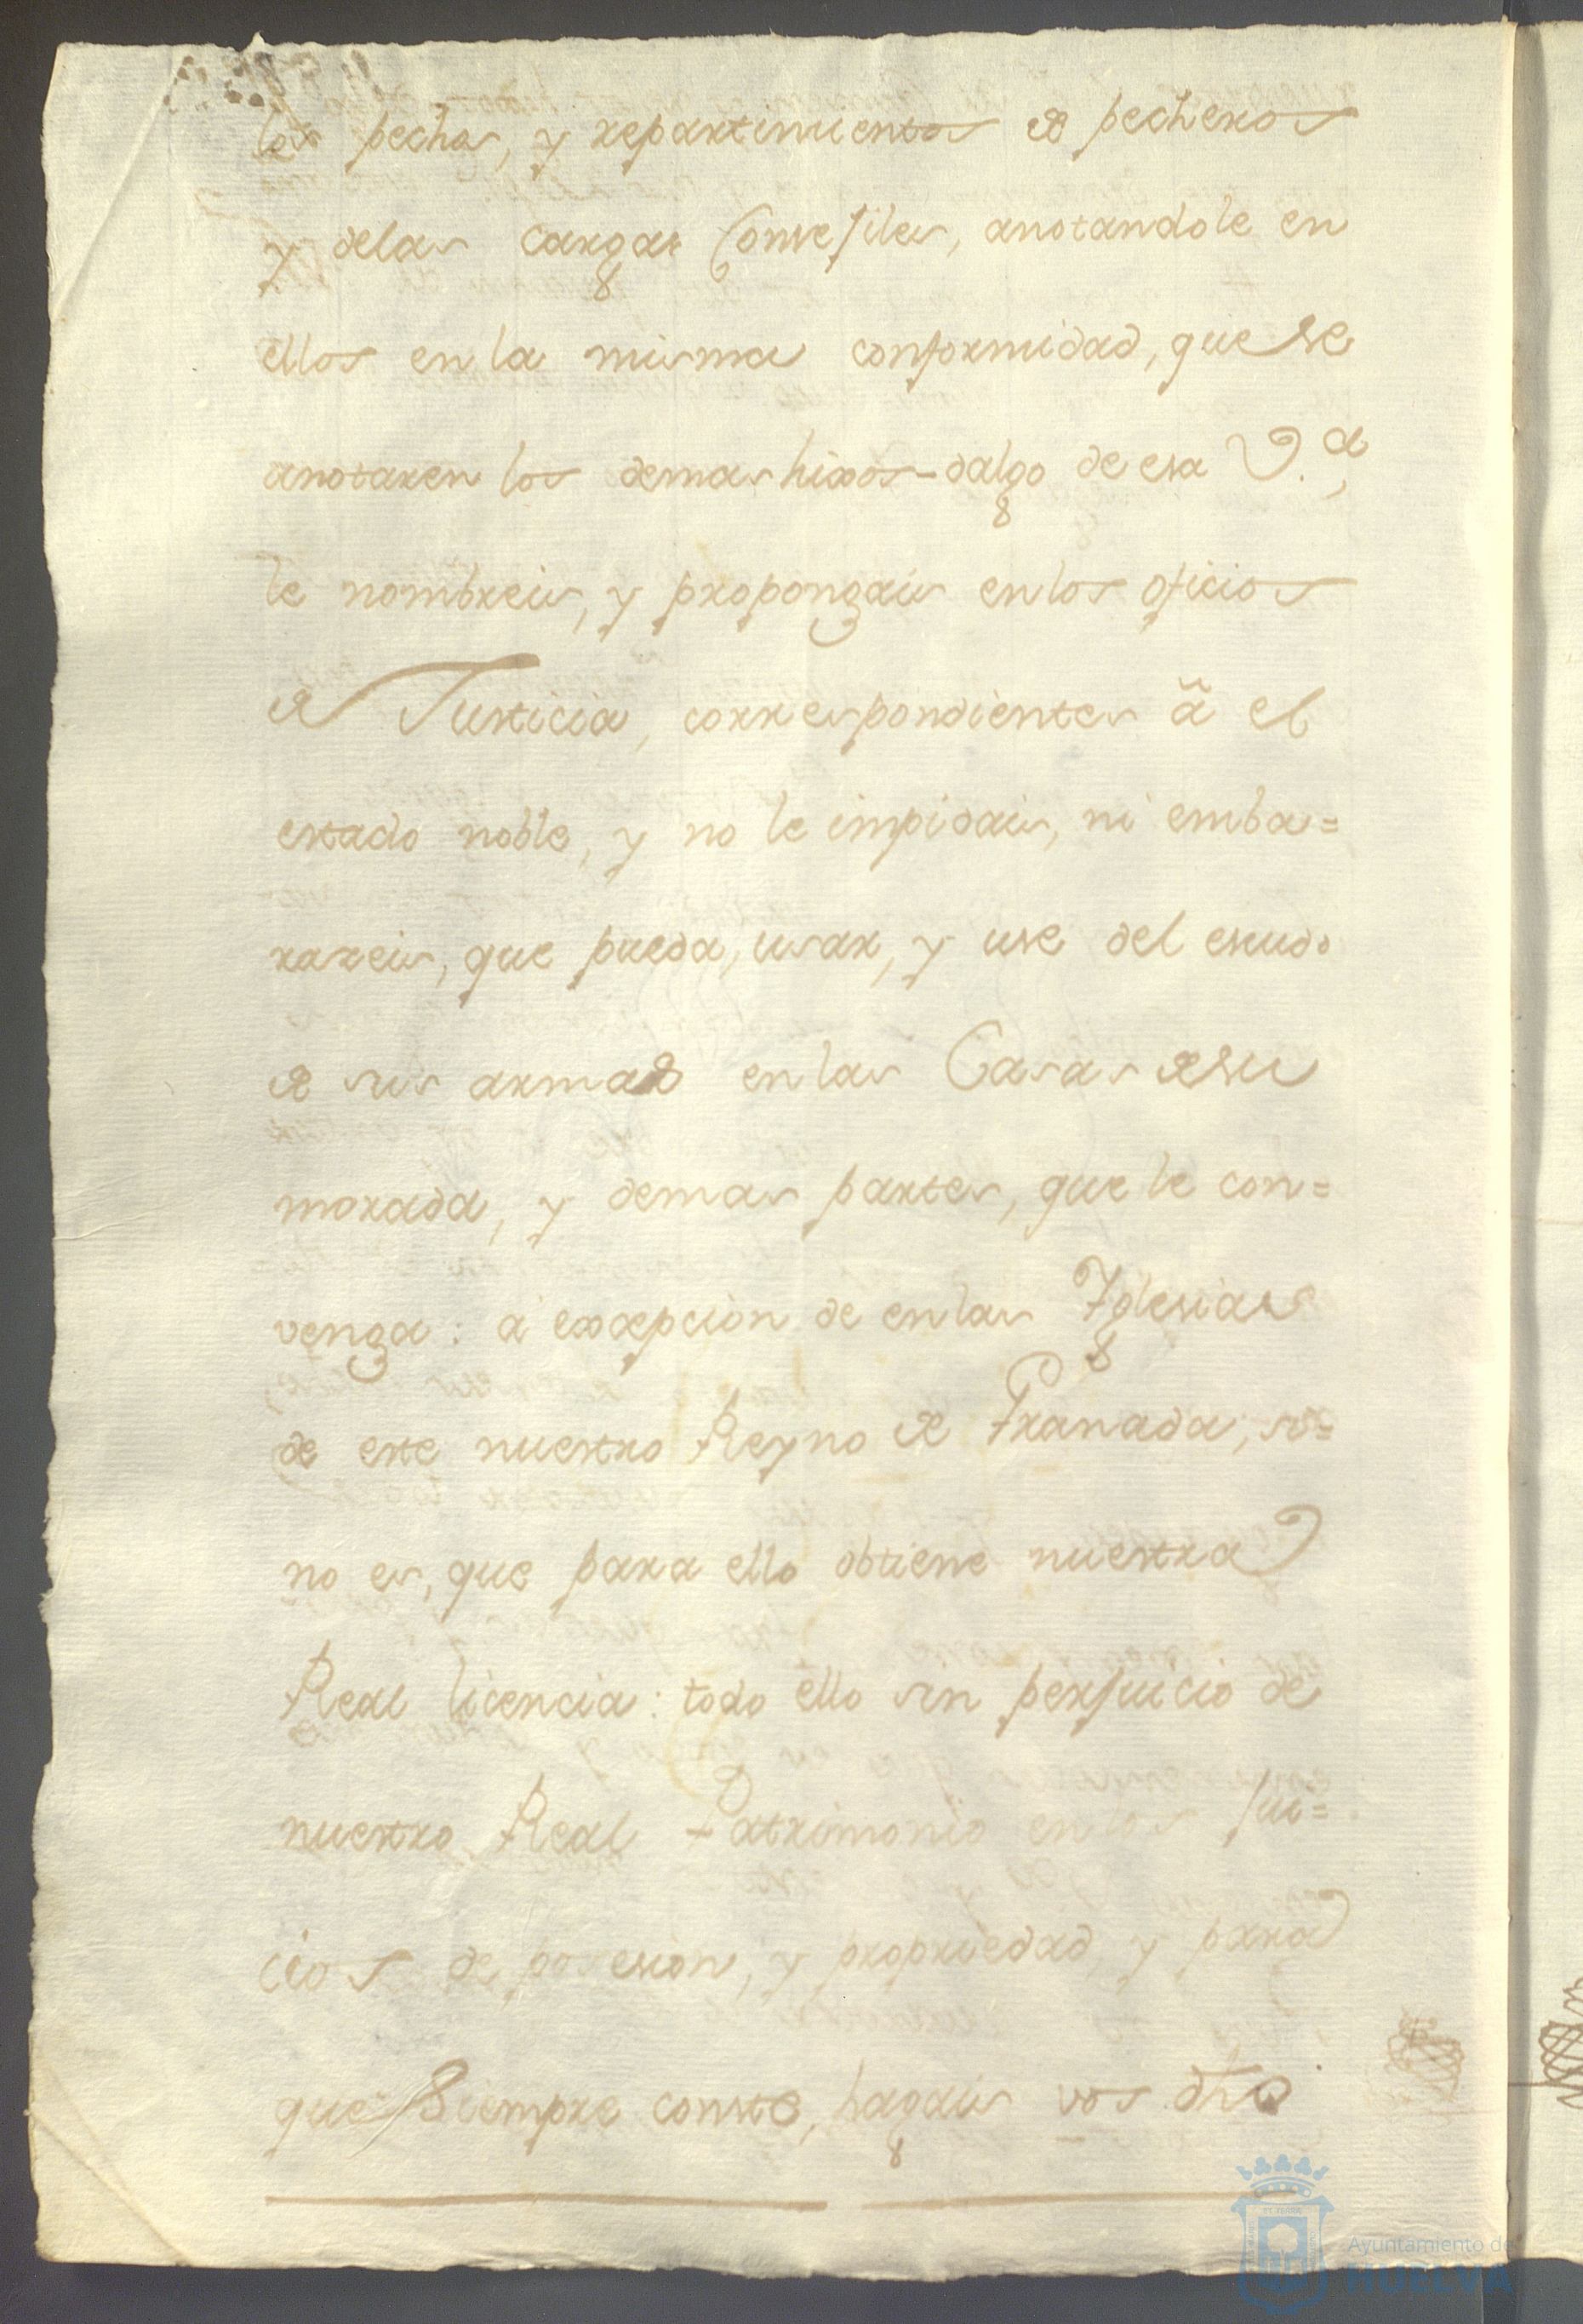 los pechos, y repartimientos de pecheros
y delas cargas Consejiles, anotandole en
ellos en la misma conformidad, que se
anotaren los demas hixos-dalgo de esa V.ª,
le nombreis, y propongais en los oficios
de Justicia, correspondientes â el
estado noble, y no le impidais, ni emba=
raxeis, que pueda, usar, y use del escudo
de sus armas en las Casas de su
morada, y demas partes, que le con=
venga: a excepcion de en las Yglesias
de este nuestro Reyno de Granada, si=
no es, que para ello obtiene nuestra
Real licencia: todo ello sin perjuicio de
nuestro Real Patrimonio en los jui=
cios de posesion, y propriedad, y para
que Siempre conste, hagais vos dho
Ayuntamiento de
HUELVA